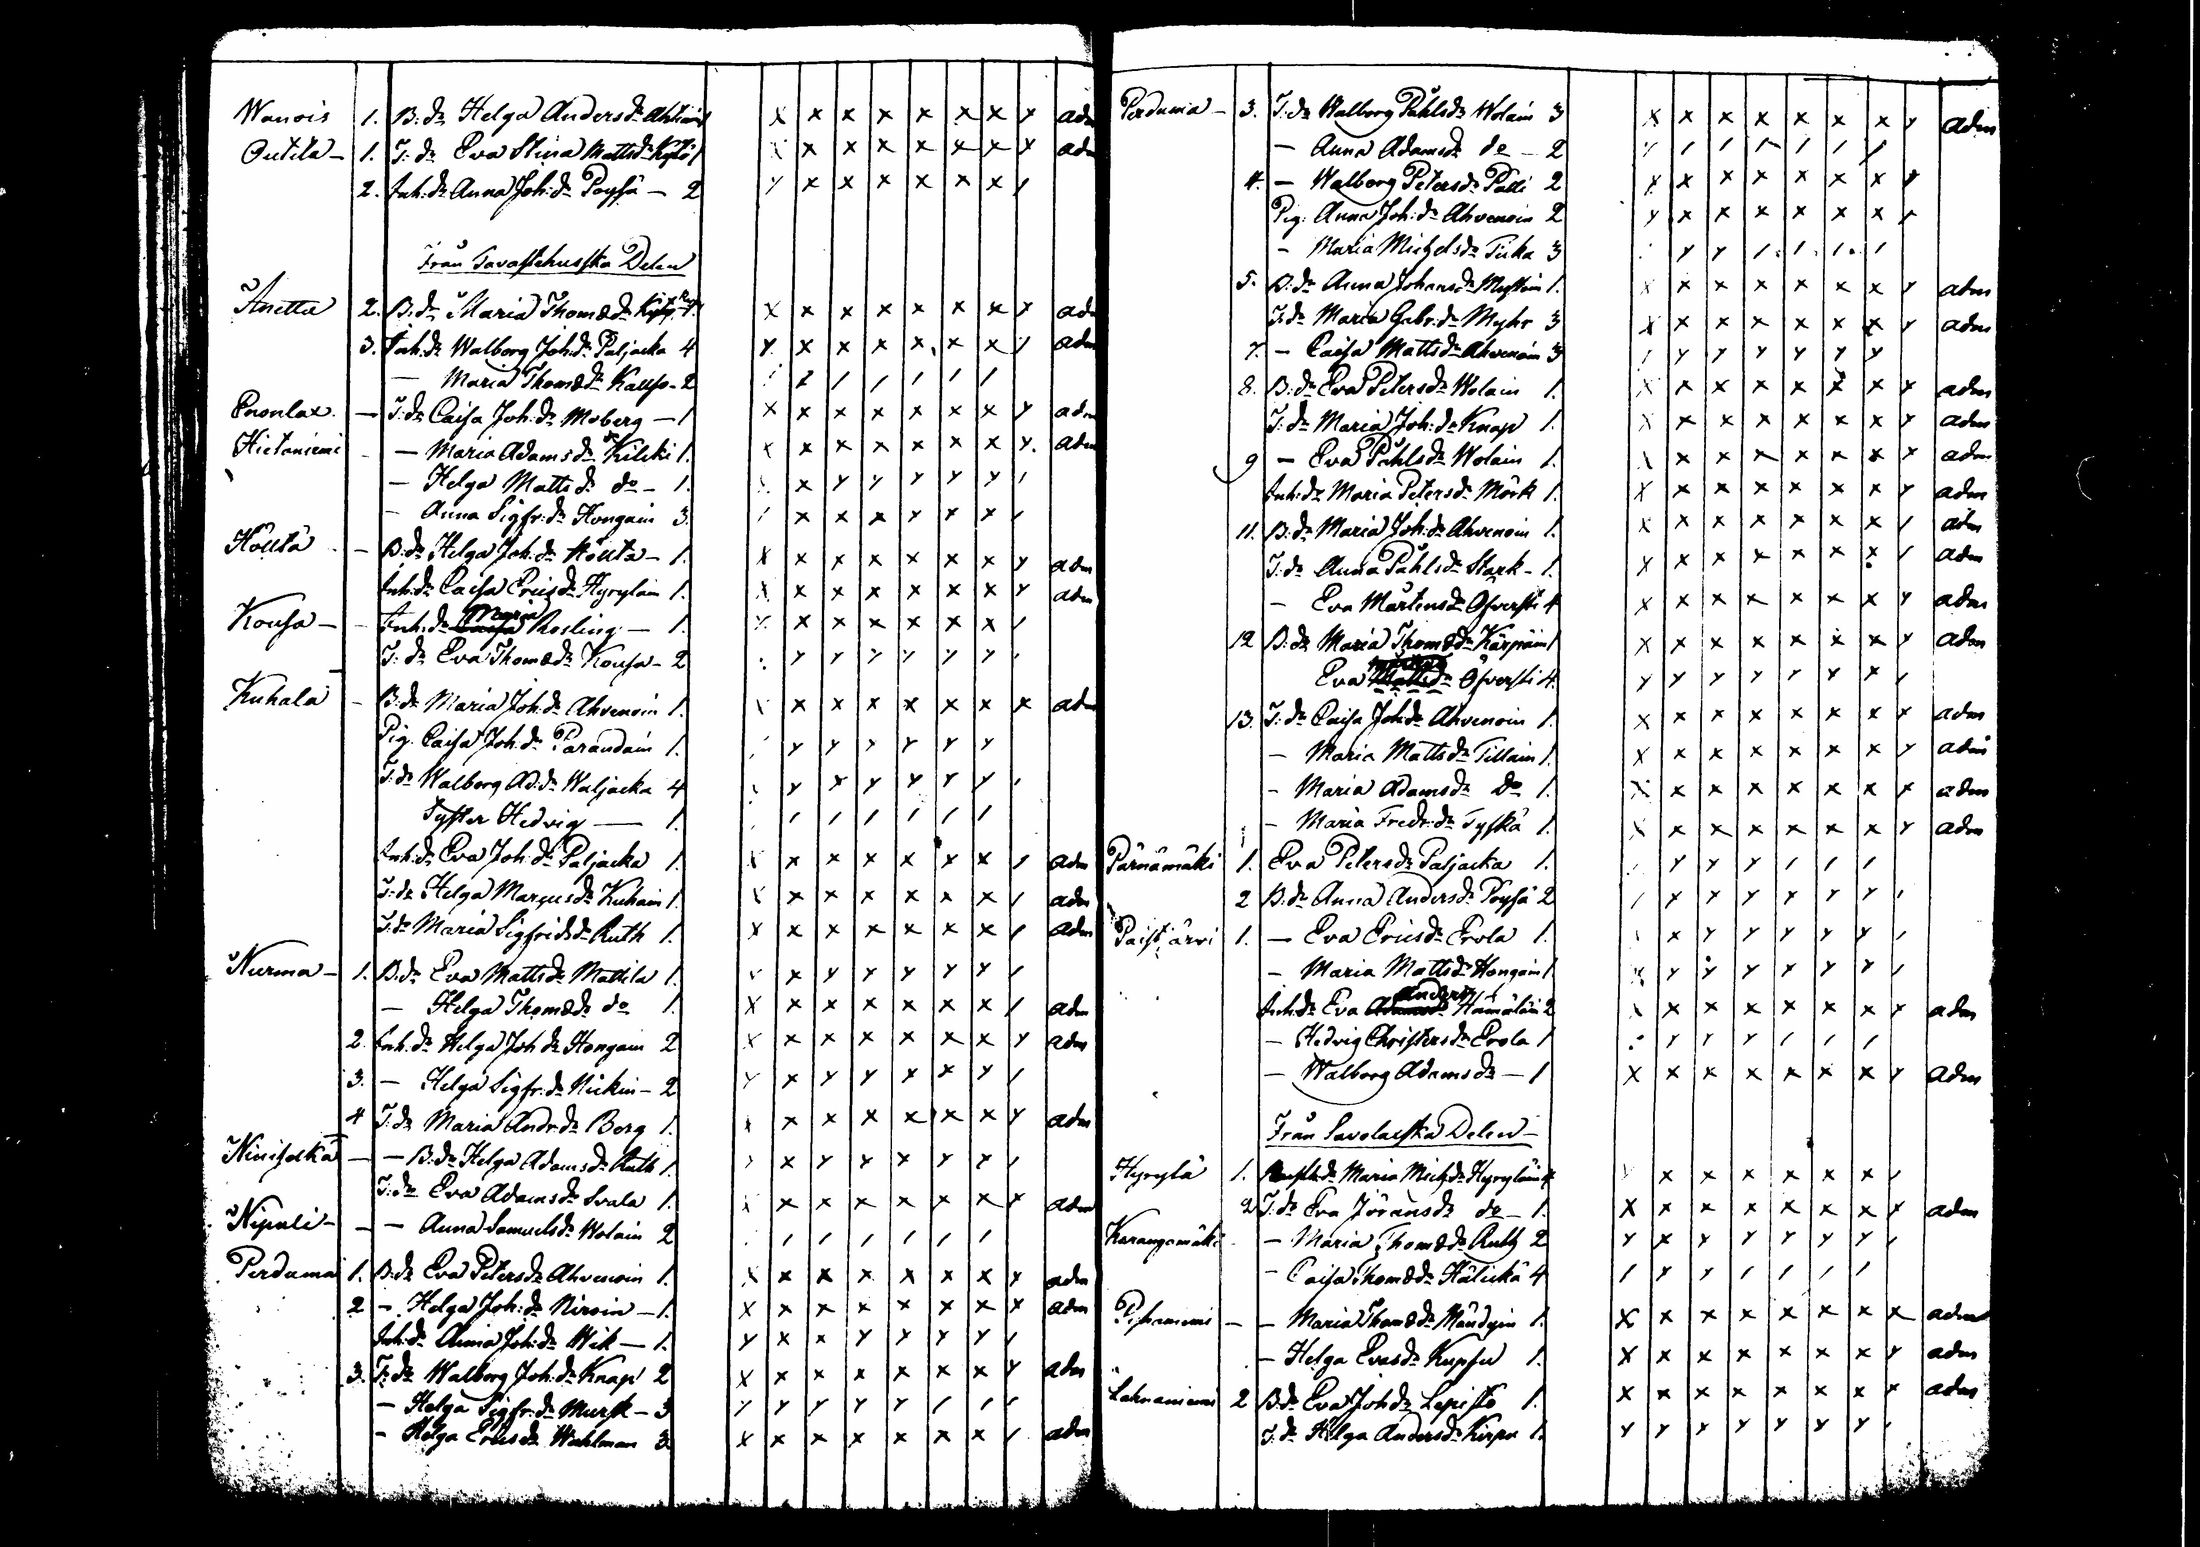 Wanois 1. B:dr Helga Andersdr Ahtiain 1 x x x x x x x y adm
Outila - 1. T:dr Eva Stina Mattsdr Kytö 1 x x x x x x x x adm
2. Inh:dr Anna Joh:dr Poyhä - 2 y x x x x x x /
Från Tavastehusska Delen
Anetta 2. B:dr Maria Thomædr x x x x x x x y adm
3. Inh:dr Walborg Joh:dr Paljacka 4 y x x x x x x y adm
— Maria Thomædr Kauso - 2
Enonlax. — T:dr Caisa Joh:dr Moberg — 1 x x x x x x x y adm
Hietaniemi — Maria Adamsdr Kilcki 1. x x x x x x x y adm
— Helga Mattsdr do - 1. x y y y y y /
— Anna Sigfr:dr Hongain 3. / x x x y x x /
Höltä - B:dr Helga Joh:dr Höltä - 1. x x x x x x x y adm
Inh:dr Caisa Ericsdr Hyryläin 1. x x x x x x x y adm
Kousa - Inh:dr Maria Rosling — 1. y x x x x x x /
T:dr Eva Thomædr Kousa - 2 y y y y y y /
Kuhala - B:dr Maria Joh:dr Ahvenoin 1. x x x x x x x x adm
Pig. Caisa Joh:dr Parandain 1. / y y y y y y
T:dr Walborg Ad:dr Waljacka 4 y x y y y y /
Syster Hedvig — 1. / / / / / / /
Inh:dr Eva Joh:dr Paljacka 1. x x x x x x x / adm
T:dr Helga Marcusdr Kuhain 1. x x x x x x x / adm
T:dr Maria Sigfridsdr Ruth 1. x x x x x x x / adm
Nurma - 1. B:dr Eva Mattsdr Mattila 1. y x y y y y y /
— Helga Thomædr do 1. x x x x x x x / adm
2. Inh:dr Helga Joh:dr Hongain 2 x x x x x x x y adm
3. — Helga Sigfr:dr Nickin - 2 y x y y x x y /
4 T:dr Maria Andr:dr Berg 1. x x x x x x x y adm
— B:dr Helga Adamsdr Ruth 1. / x y y x y y /
T:dr Eva Adamsdr Svala 1. x x x x x x x y adm
Nipuli - — Anna Samuelsdr Wolain 2 / / / / / /
Perduma 1. B:dr Eva Petersdr Ahvenoin 1. x x x x x x x y adm
2 — Helga Joh:dr Niroin — 1. x x x x x x x x adm
Inh:dr Anna Joh:dr Wik — 1. y x x y y y y /
3. T:dr Walborg Joh:dr Knap 2 x x x x x x x y adm
— Helga Sigfr:dr Mursk - 3 y y y y y / / /
— Helga Ericsdr Wahlman 3. x x x x x x x / adm
Perduma - 3. T:dr Walborg Påhlsdr Wolain 3 x x x x x x x y adm
— Anna Adamsdr do - 2 y / / / / / /
4. — Walborg Petersdr Palli 2 x x x x x x x y
Pig. Anna Joh:dr Ahvenoin 2 y x x x x x x y
— Maria Michelsdr Tuka 3 y y / / / /
5. B:dr Anna Johansdr 1. x x x x x x x y adm
T:dr Maria Gabr:dr Myhr 3 x x x x x x x y adm
7. — Caisa Mattsdr Ahvenoin 3 / y y y y y y
8. B:dr Eva Petersdr Wolain 1. x x x x x x x y adm
T:dr Maria Joh:dr Knap 1. x x x x x x x y adm
9 — Eva Påhlsdr Wolain 1. x x x x x x x y adm
Inh:dr Maria Petersdr Mörk 1. x x x x x x x y adm
11. B:dr Maria Joh:dr Ahvenoin 1. x x x x x x x / adm
T:dr Anna Påhlsdr Stark - 1. x x x x x x x / adm
— Eva Mårtensdr Öfversti 4 x x x x x x x y adm
12 B:dr Maria Thomædr Kärpäin 1 x x x x x x x y adm
Eva Öfversti 4. y y y y y y y /
13. T:dr Caisa Joh:dr Ahvenoin 1. x x x x x x x y adm
— Maria Mattsdr Tillain 1. x x x x x x x y adm
— Maria Adamsdr Do 1. x x x x x x x x adm
— Maria Fredr:dr Tyskä 1. x x x x x x x y adm
Pärnämäki 1. Eva Petersdr Paljacka 1. / y y y / / /
2 B:dr Anna Andersdr Poyhä 2 / y y y y y y /
Paistjärvi 1. — Eva Ericsdr Erola 1. x y y y y y /
— Maria Mattsdr Hongain 1 y y y y y y y /
Inh:dr Eva Anders Hämäläin 2 x x x x x x x y adm
— Hedvig Christersdr Erola 1 y y y / / /
— Walborg Adamsdr — 1 x x x x x x x y adm
Från Savolaxska Delen —
Hyrylä 1. Maria Mich:dr Hyryläin 4 x x x x x x /
2 T:dr Eva Jöransdr do - 1. x x x x x x x x adm
Karangomäki - — Maria Thomædr Ruth 2 y x y y y y y /
— Caisa Thomædr Hälickä 4 / y y / / / /
— — Maria Thomædr Mändyin 1. x x x x x x x x adm
— Helga Evasdr Kupsu 1. x x x x x x x y adm
Lahnaniemi 2 B:dr Eva Joh:dr Lepistö 1. x x x x x x x x adm
T:dr Helga Andersdr Kirpu 1. y y y y y y y /